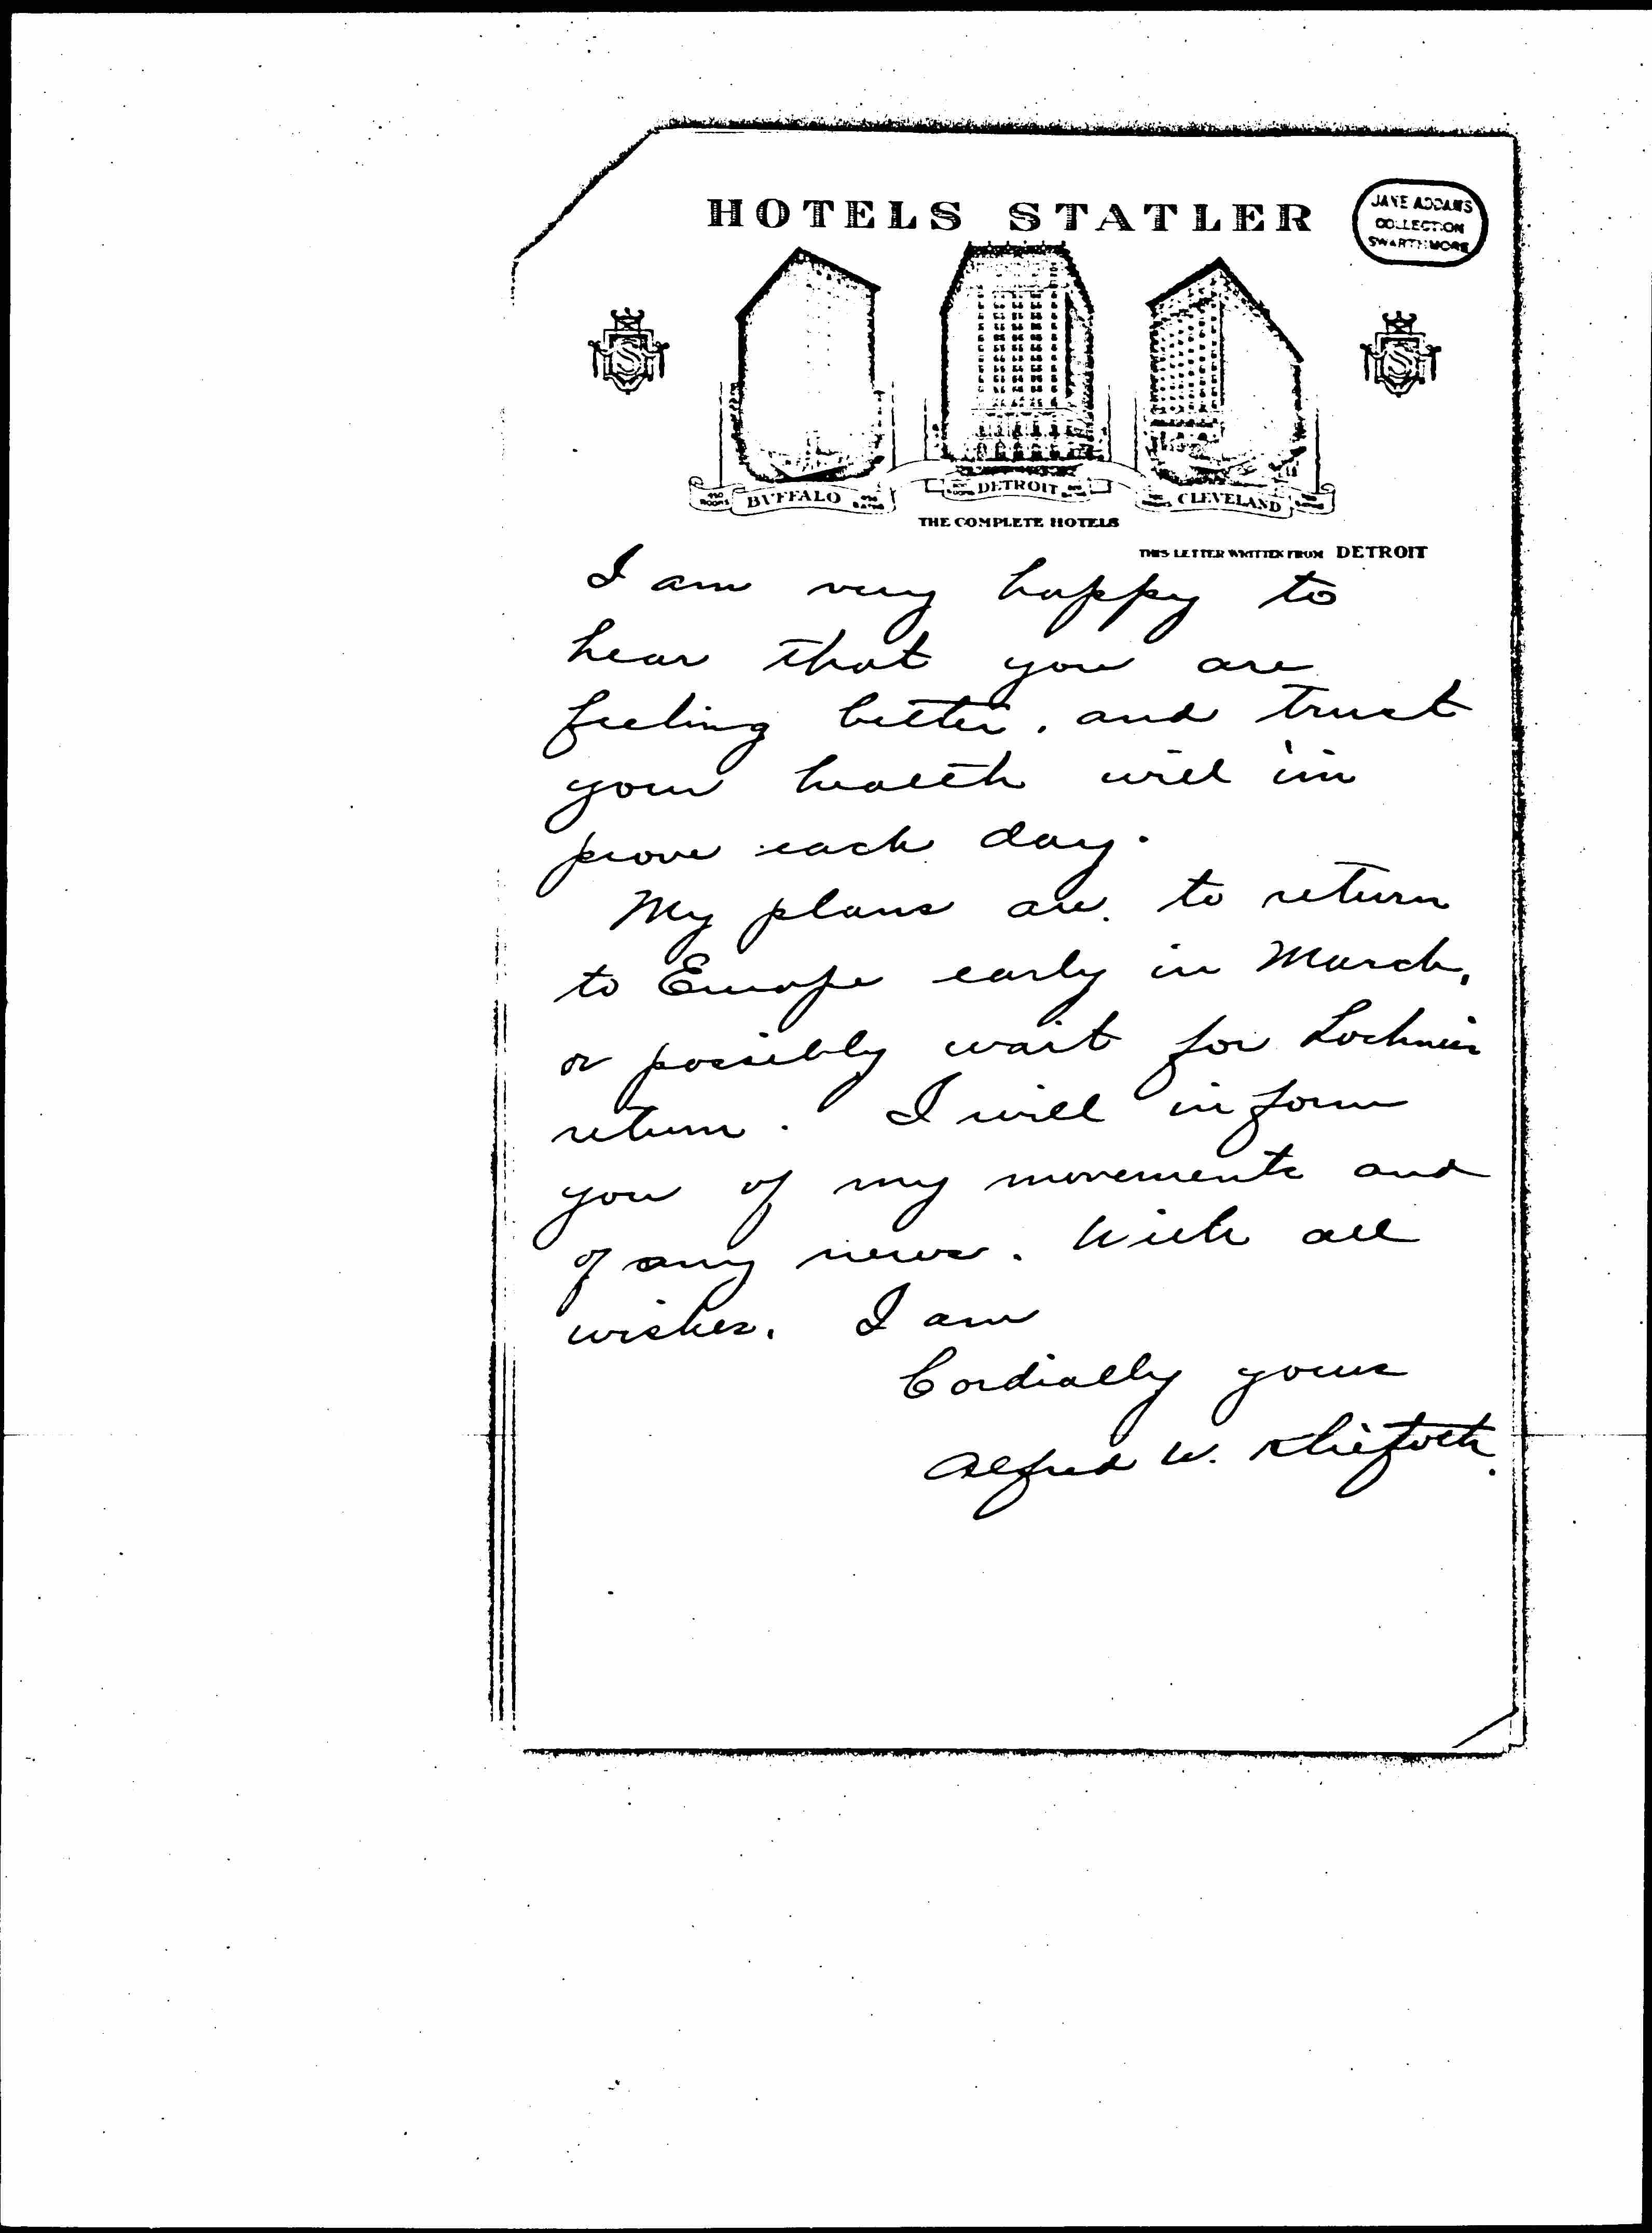 HOTELS STATLER
JANE ADDAMS
COLLECTION
SWARTHMORE
S
S
450 ROOMS BUFFALO 450 BATHS
DETROIT
CLEVELAND
THE COMPLETE HOTELS
THIS LETTER WRITTEN FROM DETROIT
I am very happy to
hear that you are
feeling better, and trust
your health will im
prove each day.
My plans are to return
to Europe early in March,
or possibly wait for Lochners
return. I will inform
you of my movements and
of any news. With all
wishes, I am
Cordially yours
Alfred W. Kliefoth.